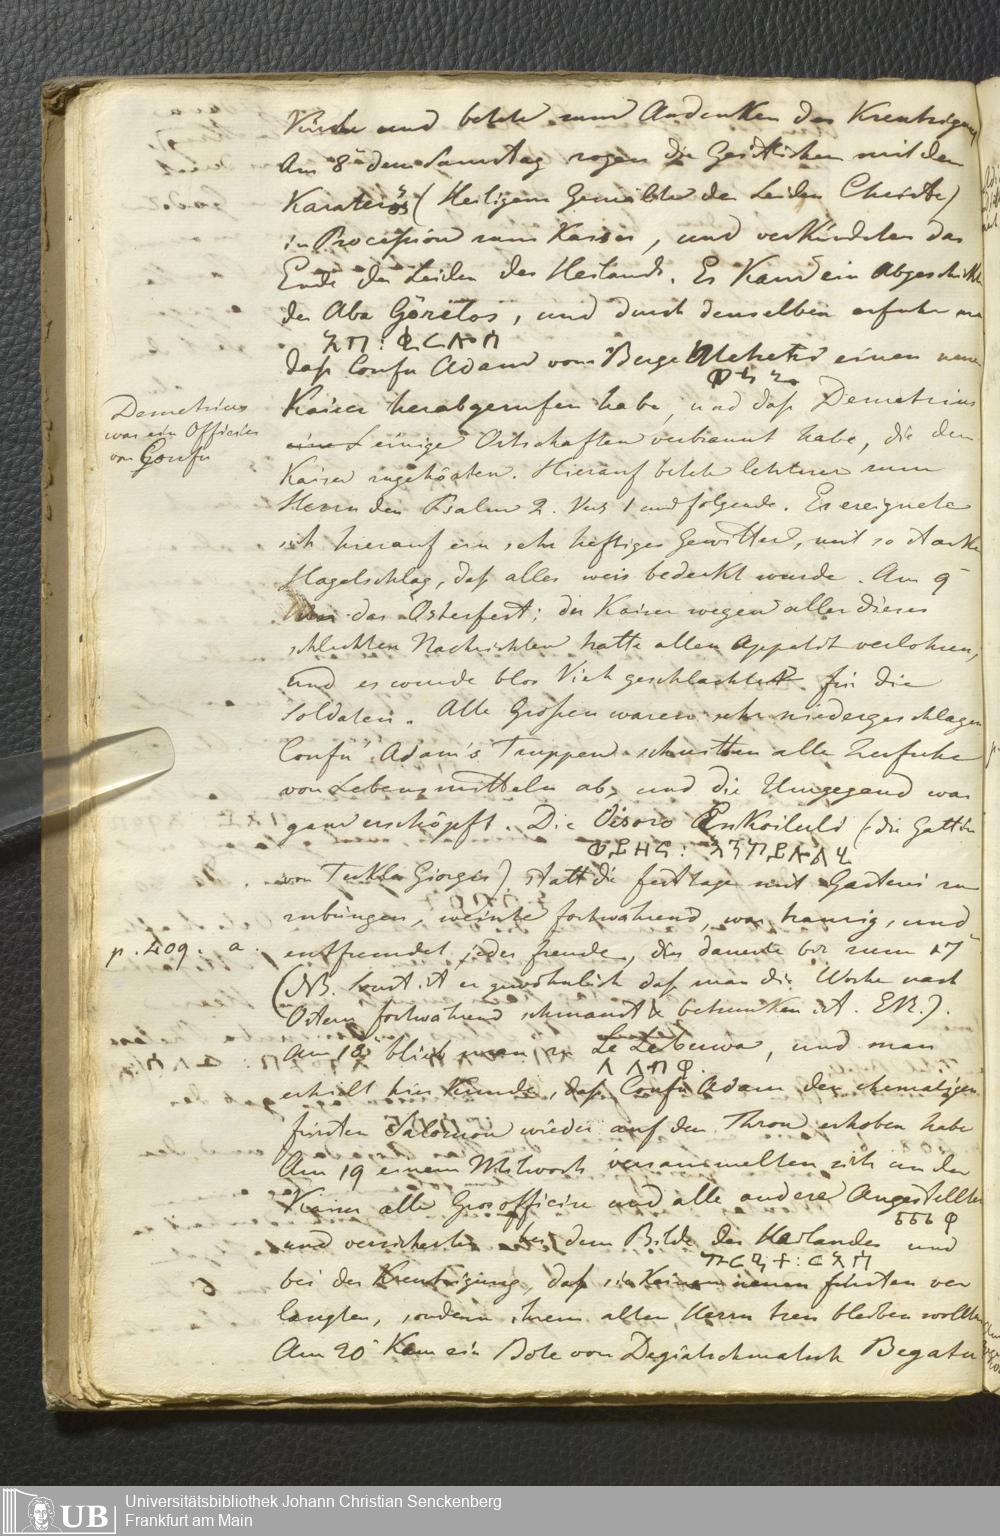 Kirche und betete zum Andenken der Kreutzigung
Am 8ᵗ dem Samstag zogen die Geistlichen mit den
Karater (Heiligem Gemälde der Leiden Christi)
in Procession zum Kaiser, und verkündeten das
Ende der Leiden des Heilands. Es Kam ein Abgeschickter
des Aba Göritos, und durch denselben erfuhr man
daß Confu Adam vom Berge einen neuen
Kaiser herabgerufen habe, und daß Demetrius
einige Ortschaften verbrannt habe, die dem
Kaiser zugehörten. Hierauf betete letzterer zum
Herrn den Psalm 2. Vers 1 und folgende. Es ereignete
sich hierauf ein sehr heftiges Gewitter, mit so starkem
Hagelschlag, daß alles weis bedeckt wurde. Am 9ᵗ
das Osterfest; der Kaiser wegen aller dieser
schlechten Nachrichten hatte allen Appetit verlohren,
und es wurde blos Vieh geschlachtet für die
Soldaten. Alle Großen waren sehr niedergeschlagen
Confu Adam's Truppen schnitten alle Zerfuhr
von Lebensmitteln ab, und die Umgegend war
ganz erschöpft. Die Oisoro Enkoilulu (die Gattin
von Teckla Giorgis) statt die festtage mit Gasterei zu
zubringen, weinte fortwährend, war traurig, und
entfremdet jeder freude, dies dauerte bis zum 17
(NB. Sonst ist es gewöhnlich daß man die Woche nach
Ostern fortwährend schmaust & betrunken ist. ER.).
Am 18ᵗ blieb man zu Lebuwa, und man
erhielt hier Kunde, daß Confu Adam den ehemaligen
fürsten Salomon wieder auf den Thron erhoben habe
Am 19 einem Mitwoch versammelten sich um den
Kaiser alle Grosofficire und alle andere Angestellten
und versicherten bei dem Bilde des Heilandes und
bei der Kreutzigung, daß sie keinen neuen fürsten ver
langten, sondern ihrem alten Herrn treu bleiben wollten
Am 20ᵗ Kam ein Bote von Degiatschmatsch Begatu
Demetrius
war ein Officier
von Gonfu
p. 409. a.
UB
Universitätsbibliothek Johann Christian Senckenberg
Frankfurt am Main